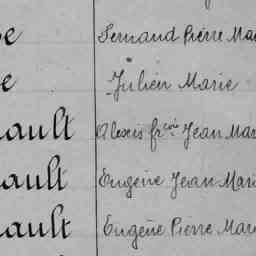 e Fernand Pierre Mar
e Julien Marie
ault Alexis frçois Jean Mar
ault Eugène Jean Mari
ault Eugène Pierre Mar